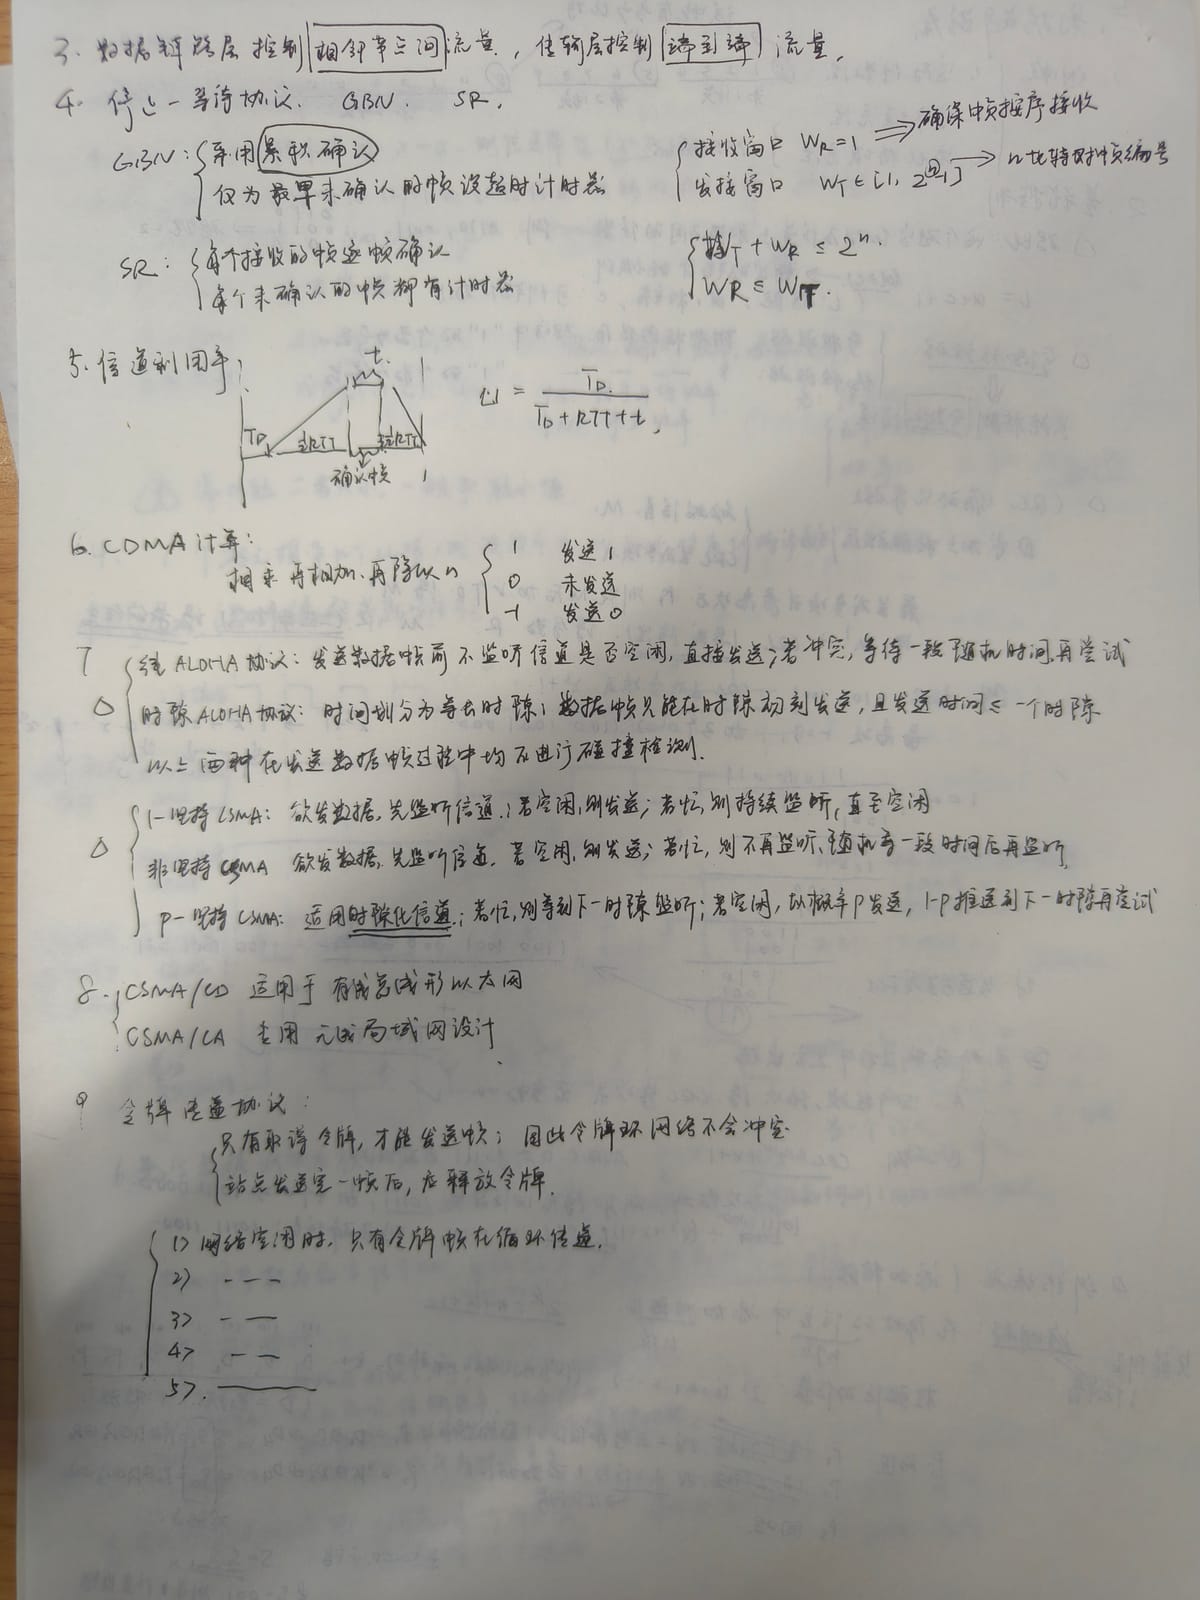 3. 数据链路层控制 相邻节点间 流量，传输层控制 端到端 流量，
4. 停止-等待协议. GBN. SR.
GBN: 采用累积确认
仅为最早未确认的帧设超时计时器
接收窗口 WR=1 ⇒ 确保帧按序接收
发接窗口 WT∈[1, 2ⁿ-1] → n比特对帧编号
SR: 每个接收的帧逐帧确认
每个未确认的帧都有计时器
WT + WR ≤ 2ⁿ.
WR ≤ WT.
5. 信道利用率:
t.
TD ½RTT ½RTT
确认帧
U = TD / (TD+RTT+t)
6. CDMA计算:
相乘再相加, 再除以n
1 发送1
0 未发送
-1 发送0
7
纯ALOHA协议: 发送数据帧前不监听信道是否空闲, 直接发送; 若冲突, 等待一段随机时间再尝试
时隙ALOHA协议: 时间划分为等长时隙; 数据帧只能在时隙初刻发送, 且发送时间≤一个时隙
以上两种在发送数据帧过程中均不进行碰撞检测.
1-坚持CSMA: 欲发数据, 先监听信道; 若空闲, 则发送; 若忙, 则持续监听, 直至空闲
非坚持CSMA 欲发数据, 先监听信道. 若空闲, 则发送; 若忙, 则不再监听, 随机等一段时间后再监听
P-坚持CSMA: 适用时隙化信道; 若忙, 则等到下一时隙监听; 若空闲, 以概率P发送, 1-P推迟到下一时隙再尝试
8. CSMA/CD 适用于 有线总线形以太网
CSMA/CA 专用 无线局域网设计
9 令牌传递协议:
只有取得令牌, 才能发送帧; 因此令牌环网络不会冲突
站点发送完一帧后, 应释放令牌.
1> 网络空闲时, 只有令牌帧在循环传递.
2> ---
3> --
4> --
5>. ——